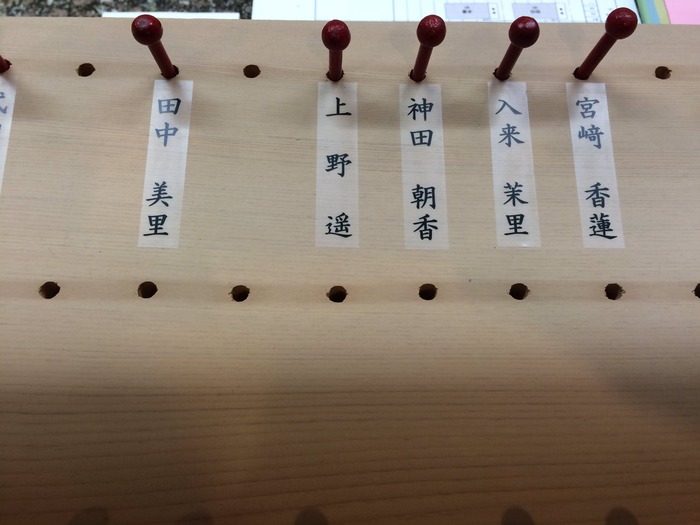 宮﨑 香蓮
入来 茉里
神田 朝香
上野 遥
田中 美里